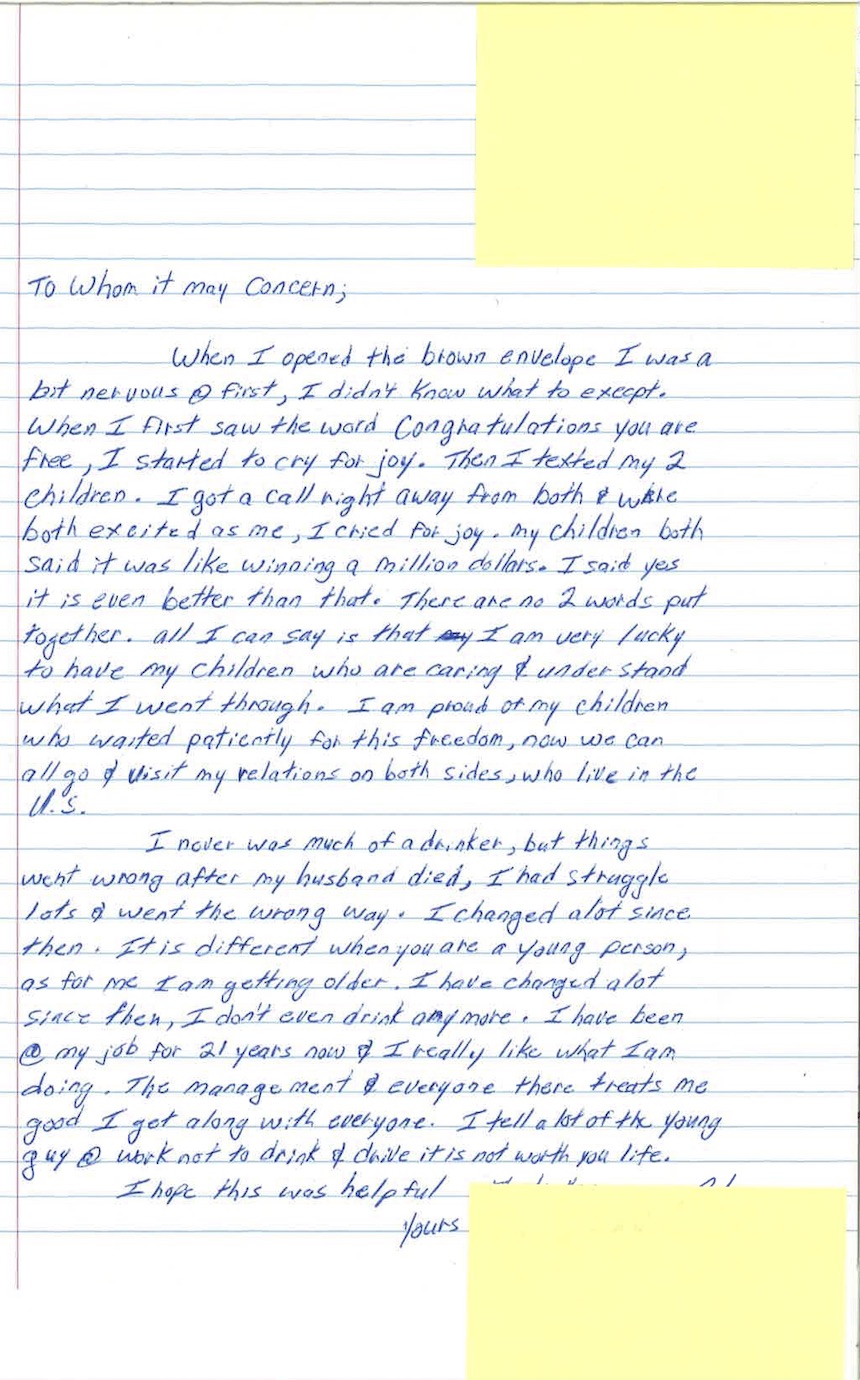 To Whom it may Concern;
When I opened the brown envelope I was a
bit nervous @ first, I didn't know what to except.
When I first saw the word Congratulations you are
free, I started to cry for joy. Then I texted my 2
children. I got a call right away from both &
both excited as me, I cried for joy. My children both
said it was like winning a million dollars. I said yes
it is even better than that. There are no 2 words put
together. all I can say is that I am very lucky
to have my children who are caring & under stand
what I went through. I am proud of my children
who waited patiently for this freedom, now we can
all go & visit my relations on both sides, who live in the
U.S.
I never was much of a drinker, but things
went wrong after my husband died, I had struggle
lots & went the wrong way. I changed alot since
then. It is different when you are a young person,
as for me I am getting older. I have changed alot
since then, I don't even drink anymore. I have been
@ my job for 21 years now & I really like what I am
doing. The management & everyone there treats me
good I get along with everyone. I tell a lot of the young
guy @ work not to drink & drive it is not worth you life.
I hope this was helpful
Yours